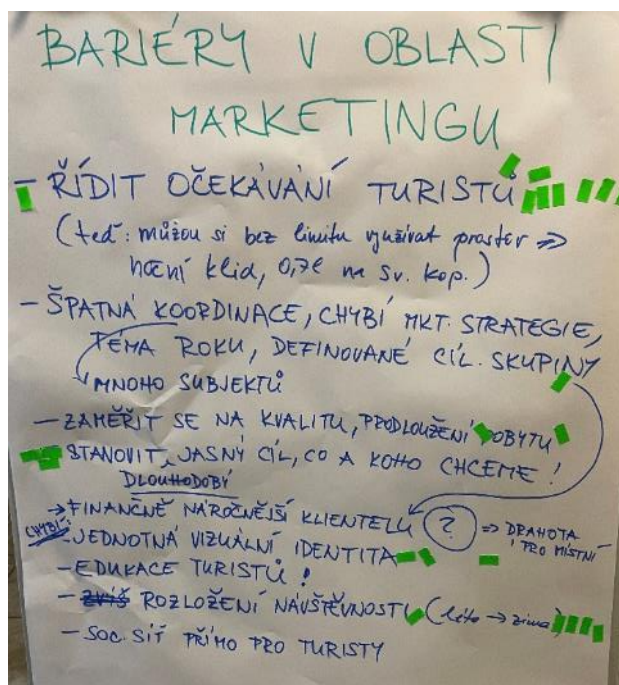 BARIÉRY V OBLASTI
MARKETINGU
- ŘÍDIT OČEKÁVÁNÍ TURISTŮ
(teď: můžou si bez limitu využívat prostor ⇒
noční klid, 0,7l na Sv. Kop.)
- ŠPATNÁ KOORDINACE, CHYBÍ MKT. STRATEGIE,
TÉMA ROKU, DEFINOVANÉ CÍL. SKUPINY
MNOHO SUBJEKTŮ
- ZAMĚŘIT SE NA KVALITU, PRODLOUŽENÍ POBYTU
STANOVIT JASNÝ CÍL, CO A KOHO CHCEME!
DLOUHODOBÝ
→ FINANČNĚ NÁROČNĚJŠÍ KLIENTELU ? ⇒ DRAHOTA
PRO MÍSTNÍ
CHYBÍ - JEDNOTNÁ VIZUÁLNÍ IDENTITA
- EDUKACE TURISTŮ!
- ROZLOŽENÍ NÁVŠTĚVNOSTI (léto → zima)
- SOC. SÍŤ PŘÍMO PRO TURISTY